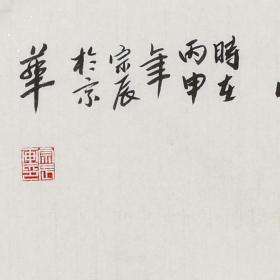 時在
丙申
年
宗辰
於京
華